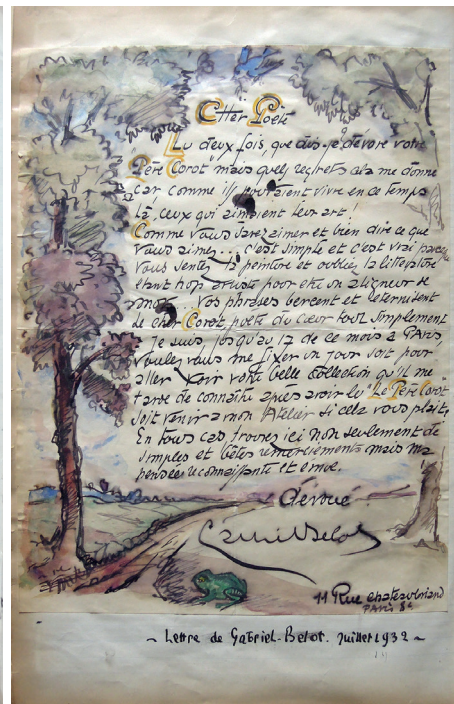 Cher Poète
Lu deux fois, que dis-je dévoré votre
Père Corot mais quels regrets cela me donne
car comme ils pouvaient vivre en ce temps
là, ceux qui aimaient leur art.
Comme vous savez aimer et bien dire ce que
vous aimez... c'est simple et c'est vrai parce que
vous sentez la peinture et oubliez la littérature
étant trop artiste pour être un aligneur de
mots... Vos phrases bercent et éternisent
le cher Corot, poète du cœur tout simplement
Je suis jusqu'au 17 de ce mois à Paris,
voulez vous me fixer un jour soit pour
aller voir votre belle collection qu'il me
tarde de connaître après avoir lu "Le Père Corot"
soit venir à mon Atelier si cela vous plait.
En tous cas trouvez ici non seulement de
simples et bêtes remerciements mais ma
pensée reconnaissante et émue.
Dévoué
11 Rue Chateaubriand
PARIS 8e
~ Lettre de Gabriel-Belot. Juillet 1932 ~